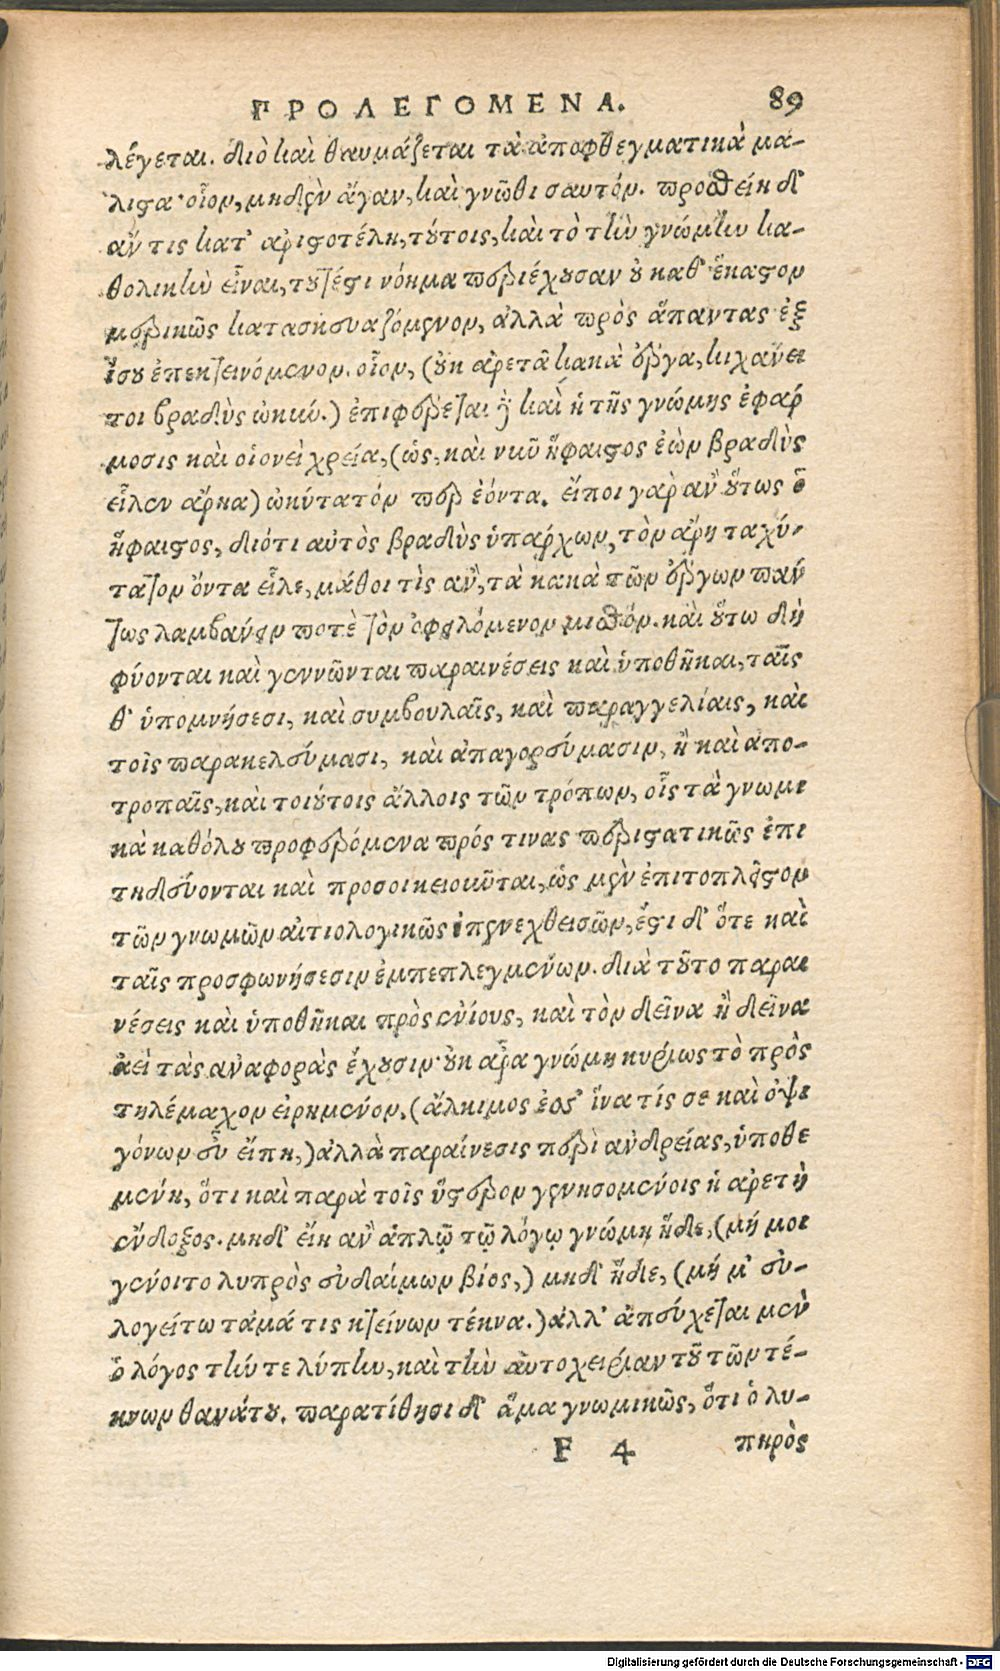 ΠΡΟΛΕΓΟΜΕΝΑ. 89
λέγεται. διὸ καὶ θαυμάζεται τὰ ἀποφθεγματικὰ μά-
λιστα· οἷον, μηδὲν ἄγαν, καὶ γνῶθι σαυτόν. προσθείη δ᾽
ἄν τις κατ᾽ ἀριστοτέλη, τούτοις, καὶ τὸ τὴν γνώμην κα-
θολικὴν εἶναι, τουτέστι νόημα περιέχουσαν οὐ καθ᾽ ἕκαστον
μερικῶς κατασκευαζόμενον, ἀλλὰ πρὸς ἅπαντας ἐξ
ἴσου ἐπεκτεινόμενον. οἷον, (οὐκ ἀρετᾷ κακὰ ἔργα, κιχάνει
τοι βραδὺς ὠκύν.) ἐπιφέρεται γὰρ καὶ ἡ τῆς γνώμης ἐφάρ
μοσις καὶ οἱονεὶ χρεία, (ὡς, καὶ νῦν ἥφαιστος ἐὼν βραδὺς
εἷλεν ἄρηα) ὠκύτατόν περ ἐόντα. εἴποι γὰρ ἂν οὕτως ὁ
ἥφαιστος, διότι αὐτὸς βραδὺς ὑπάρχων, τὸν ἄρη ταχύ-
τατον ὄντα εἷλε, μάθοι τὶς ἂν, τὰ κακὰ τῶν ἔργων πάν
τως λαμβάνειν ποτὲ τὸν ὀφειλόμενον μισθόν. καὶ οὕτω δὴ
φύονται καὶ γεννῶνται παραινέσεις καὶ ὑποθῆκαι, ταῖς
θ᾽ ὑπομνήσεσι, καὶ συμβουλαῖς, καὶ παραγγελίαις, καὶ
τοῖς παρακελεύμασι, καὶ ἀπαγορεύμασιν, ἢ καὶ ἀπο-
τροπαῖς, καὶ τοιούτοις ἄλλοις τῶν τρόπων, οἷς τὰ γνωμι
κὰ καθόλου προφερόμενα πρός τινας περιστατικῶς ἐπι
τηδεύονται καὶ προσοικειοῦται, ὡς μὲν ἐπιτοπλεῖστον
τῶν γνωμῶν αἰτιολογικῶς ἐπενεχθεισῶν, ἔστι δ᾽ ὅτε καὶ
ταῖς προσφωνήσεσιν ἐμπεπλεγμένων. διὰ τοῦτο παραι
νέσεις καὶ ὑποθῆκαι πρὸς ἐνίους, καὶ τὸν δεῖνα ἢ δεῖνα
ἀεὶ τὰς ἀναφορὰς ἔχουσιν· οὐκ ἄρα γνώμη κυρίως τὸ πρὸς
τηλέμαχον εἰρημένον, (ἄλκιμος ἔσσ᾽ ἵνα τίς σε καὶ ὀψι
γόνων εὖ εἴπῃ,) ἀλλὰ παραίνεσις περὶ ἀνδρείας, ὑποθε
μένη, ὅτι καὶ παρὰ τοῖς ὕστερον γενησομένοις ἡ ἀρετὴ
ἔνδοξος. μηδ᾽ εἴη ἂν ἁπλῷ τῷ λόγῳ γνώμη ἥδε, (μή μοι
γένοιτο λυπρὸς εὐδαίμων βίος,) μηδ᾽ ἥδε, (μή μ᾽ εὐ-
λογείτω τἀμά τις κτείνων τέκνα.) ἀλλ᾽ ἀπεύχεται μὲν
ὁ λόγος τήν τε λύπην, καὶ τὴν αὐτοχειρίαν τοῦ τῶν τέ-
κνων θανάτου. παρατίθησι δ᾽ ἅμα γνωμικῶς, ὅτι ὁ λυ-
F 4 πηρὸς
Digitalisierung gefördert durch die Deutsche Forschungsgemeinschaft - DFG